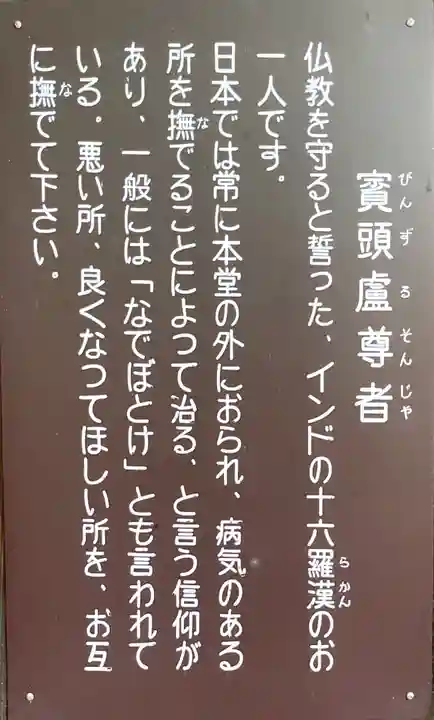 賓頭盧尊者
びんずるそんじゃ
仏教を守ると誓った、インドの十六羅漢のお
らかん
一人です。
日本では常に本堂の外におられ、病気のある
所を撫でることによって治る、と言う信仰が
な
あり、一般には「なでぼとけ」とも言われて
いる。悪い所、良くなってほしい所を、お互
に撫でて下さい。
な